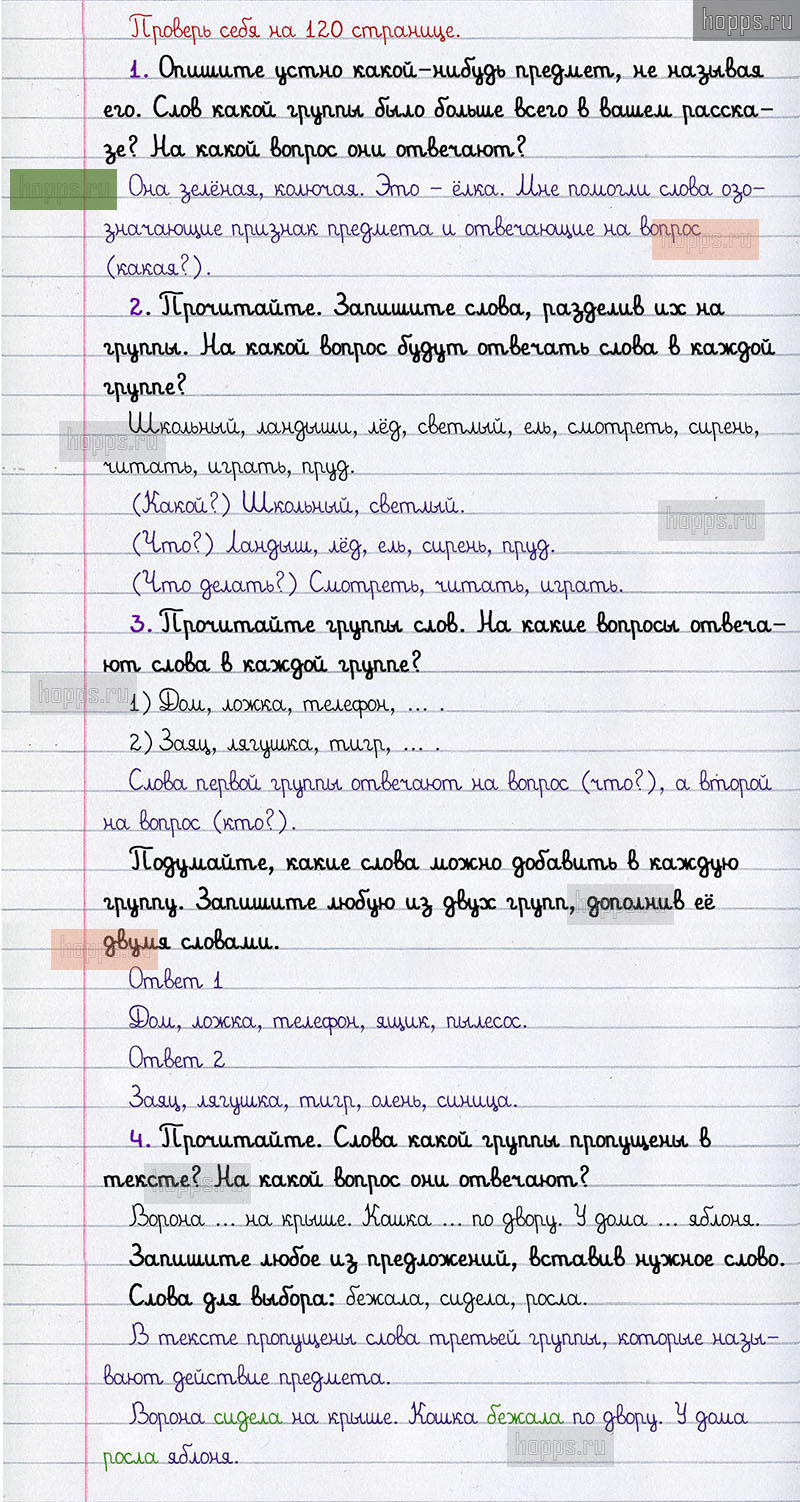 hopps.ru
Проверь себя на 120 странице.
1. Опишите устно какой-нибудь предмет, не называя
его. Слов какой группы было больше всего в вашем расска-
зе? На какой вопрос они отвечают?
hopps.ru
Она зелёная, колючая. Это – ёлка. Мне помогли слова озо-
значающие признак предмета и отвечающие на вопрос
hopps.ru
(какая?).
2. Прочитайте. Запишите слова, разделив их на
группы. На какой вопрос будут отвечать слова в каждой
группе?
Школьный, ландыши, лёд, светлый, ель, смотреть, сирень,
hopps.ru
читать, играть, пруд.
(Какой?) Школьный, светлый.
hopps.ru
(Что?) Ландыш, лёд, ель, сирень, пруд.
(Что делать?) Смотреть, читать, играть.
3. Прочитайте группы слов. На какие вопросы отвеча-
ют слова в каждой группе?
hopps.ru
1) Дом, ложка, телефон, ... .
2) Заяц, лягушка, тигр, ... .
Слова первой группы отвечают на вопрос (что?), а второй
на вопрос (кто?).
Подумайте, какие слова можно добавить в каждую
группу. Запишите любую из двух групп, дополнив её
hopps.ru
двумя словами.
hopps.ru
Ответ 1
Дом, ложка, телефон, ящик, пылесос.
Ответ 2
Заяц, лягушка, тигр, олень, синица.
4. Прочитайте. Слова какой группы пропущены в
тексте? На какой вопрос они отвечают?
hopps.ru
Ворона ... на крыше. Кашка ... по двору. У дома ... яблоня.
Запишите любое из предложений, вставив нужное слово.
Слова для выбора: бежала, сидела, росла.
В тексте пропущены слова третьей группы, которые назы-
вают действие предмета.
Ворона сидела на крыше. Кашка бежала по двору. У дома
росла яблоня.
hopps.ru